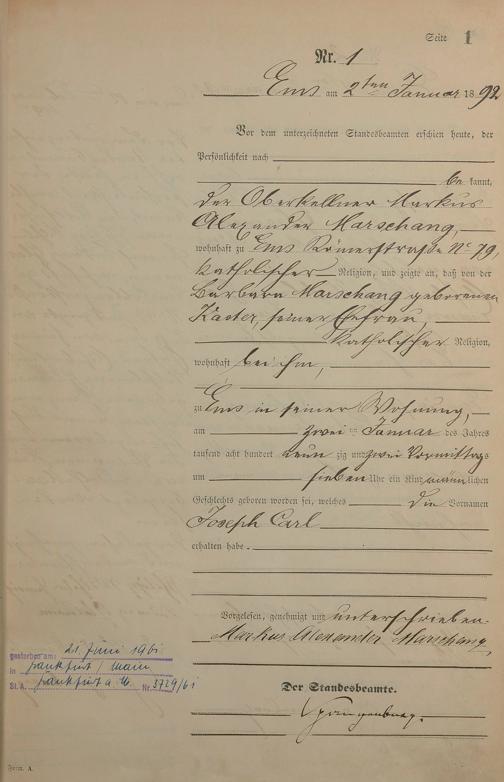 Seite 1
Nr. 1
Ems am 2ten Januar 1892
Vor dem unterzeichneten Standesbeamten erschien heute, der
Persönlichkeit nach
be kannt,
der Oberkellner Markus
Alexander Marschang,
wohnhaft zu Ems Römerstraße No 79,
katholischer Religion, und zeigte an, daß von der
Barbara Marschang geborenen
Kaster, seiner Ehefrau,
katholischer Religion,
wohnhaft bei ihm,
zu Ems in seiner Wohnung,
am zwei ten Januar des Jahres
tausend acht hundert neun zig und zwei Vormittags
um sieben Uhr ein Kind männlichen
Geschlechts geboren worden sei, welches die Vornamen
Joseph Carl
erhalten habe.
Vorgelesen, genehmigt und unterschrieben
Markus Alexander Marschang,
gestorben am: 21. Juni 1961
in Frankfurt / Main
St. A. Frankfurt a. M. Nr. 3729/61
Der Standesbeamte.
Form. A.